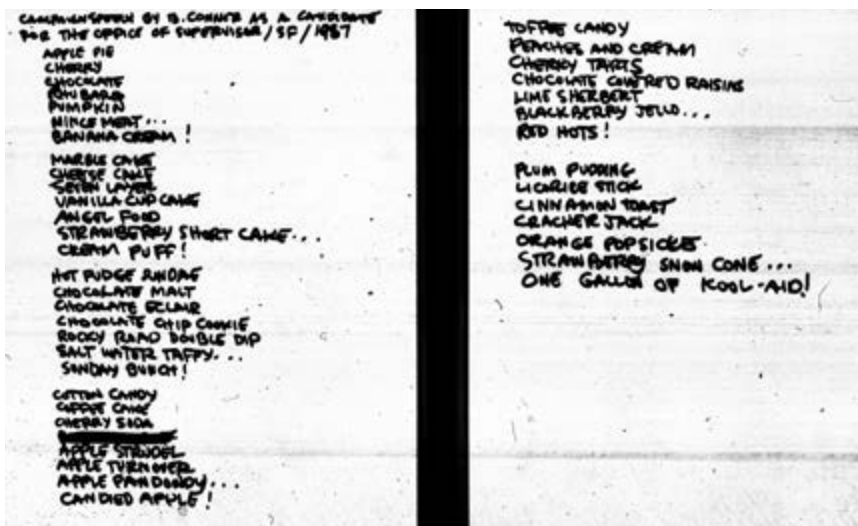 CAMPAIGN SPEECH BY B. CONNER AS A CANDIDATE
FOR THE OFFICE OF SUPERVISOR/SF/1967
APPLE PIE
CHERRY
CHOCOLATE
RHUBARB
PUMPKIN
MINCE MEAT...
BANANA CREAM!
MARBLE CAKE
CHEESE CAKE
SEVEN LAYER
VANILLA CUP CAKE
ANGEL FOOD
STRAWBERRY SHORT CAKE...
CREAM PUFF!
HOT FUDGE SUNDAE
CHOCOLATE MALT
CHOCOLATE ECLAIR
CHOCOLATE CHIP COOKIE
ROCKY ROAD DOUBLE DIP
SALT WATER TAFFY...
SUNDAY BUNCH!
COTTON CANDY
COFFEE CAKE
CHERRY SODA
APPLE STRUDEL
APPLE TURNOVER
APPLE PANDOWDY...
CANDIED APPLE!
TOFFEE CANDY
PEACHES AND CREAM
CHERRY TARTS
CHOCOLATE COVERED RAISINS
LIME SHERBERT
BLACKBERRY JELLO...
RED HOTS!
PLUM PUDDING
LICORICE STICK
CINNAMON TOAST
CRACKER JACK
ORANGE POPSICKLE
STRAWBERRY SNOW CONE...
ONE GALLON OF KOOL-AID!